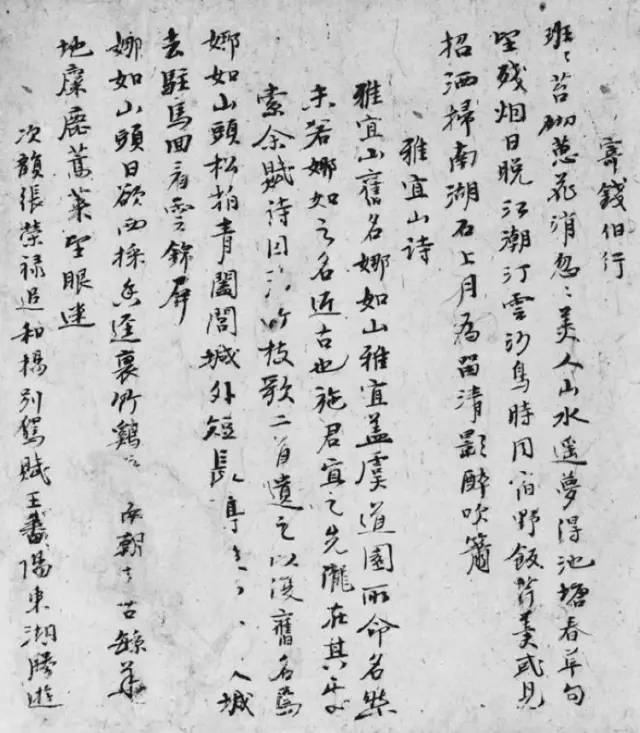 寄錢伯行
班〻苔砌蕙花消忽〻美人山水遥夢得池塘春草句
望残烟日晚江潮汀雲沙鳥時同宿野飯芹羹或見
招洒掃南湖石上月為留清影醉吹簫
雅宜山詩
雅宜山舊名娜如山雅宜盖虞道園所命名然
未若娜如之名近古也施君宜之先隴在其
索余賦詩因竹枝歌二首遺之以復舊名焉
娜如山頭松柏青闔閭城外短長亭入城
去駐馬回看雲錦屏
娜如山頭日欲西採香逕裏竹鷄朝古
地麋鹿蒿萊望眼迷
次韻張榮禄追和楊別駕賦王番陽東湖勝遊